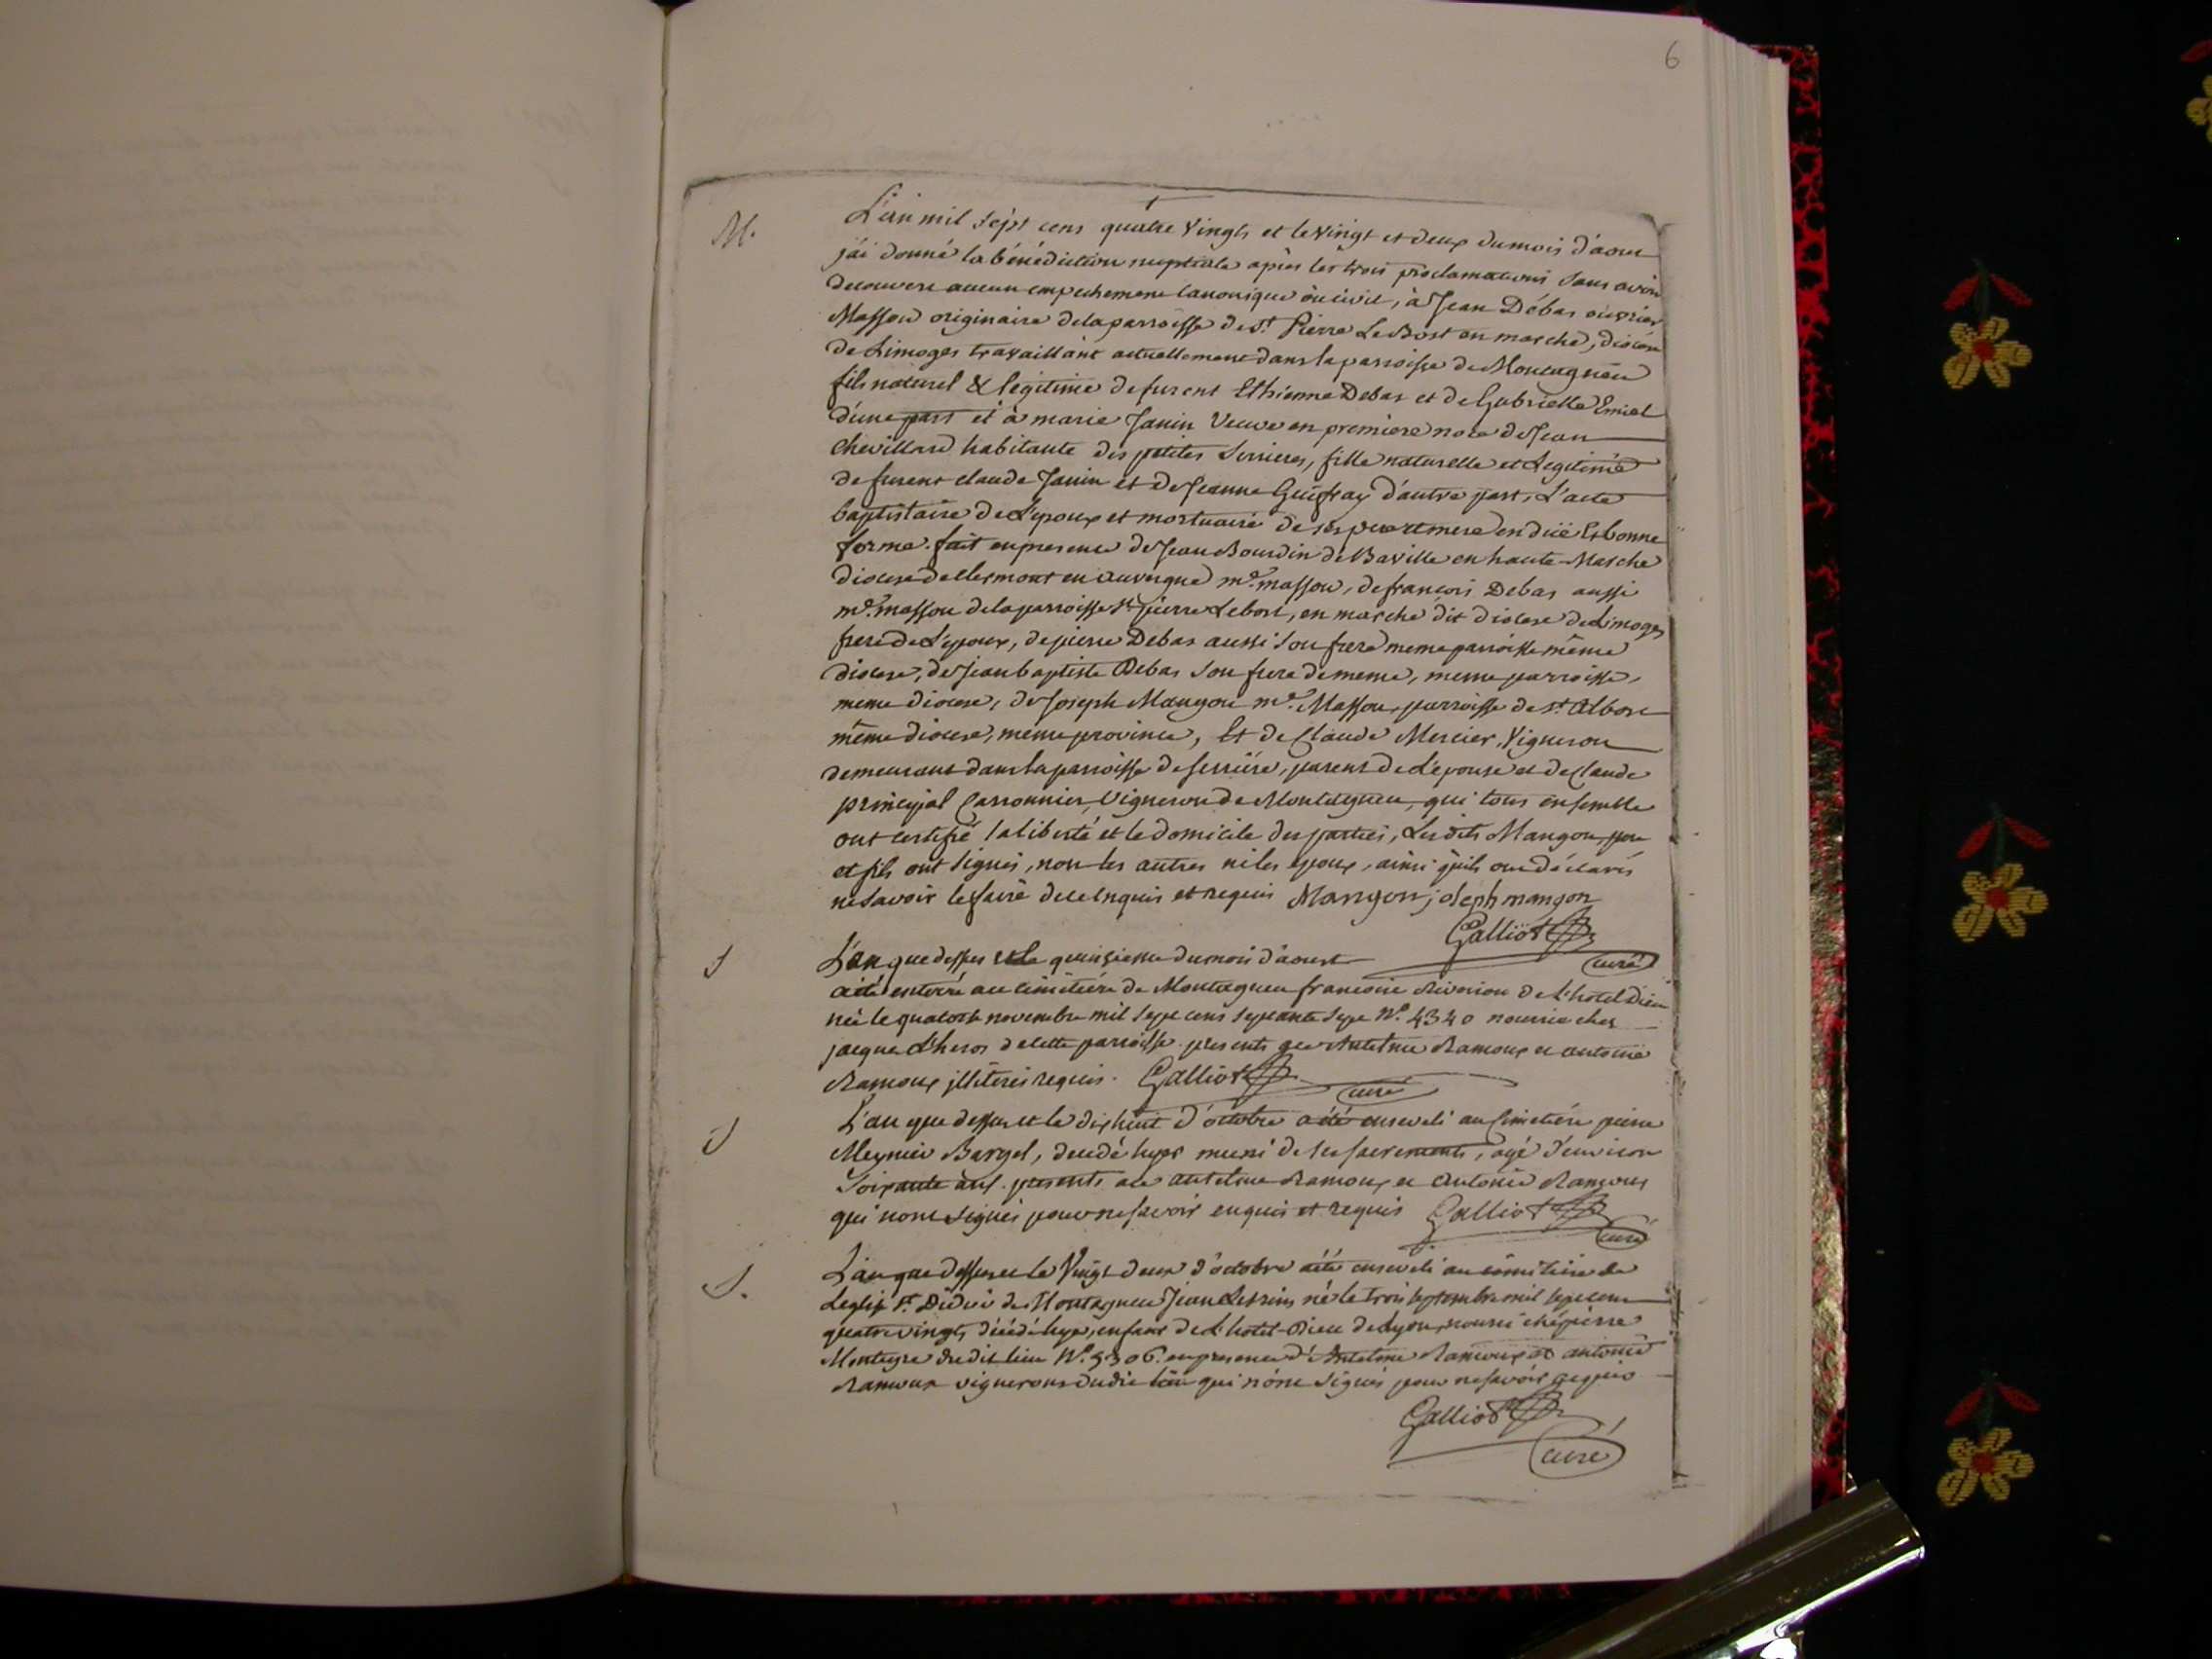 6
M.
L'an mil sept cens quatre vingts et le vingt et deux du mois d'aout
j'ai donné la bénédiction nuptiale après les trois proclamations sans avoir
decouvert aucun empechement canonique ou civil, à Jean Débas ouvrier
Masson originaire de la parroisse de St. Pierre Le Bost en marche, diocese
de Limoges travaillant actuellement dans la parroisse de Montagneu
fils naturel & légitime de furent Ethienne Debas et de Gabrielle
d'une part et à marie Janin Veuve en premiere noce de Jean
chevillard habitante des petites Serrieres, fille naturelle et Legitime
de furent claude Janin et de Jeanne Guifray d'autre part, L'acte
baptistaire de L'epoux et mortuaire de ses pere et mere en due Et bonne
forme. fait en presence de Jean Bourdin de Baville en haute Marche
diocese de Clermont en auvergne me. masson, de francois Debas aussi
me. masson de la parroisse St pierre Lebost, en marche dit diocese de Limoges
frere de L'epoux, de pierre Debas aussi son frere meme parroisse même
diocese, de Jean baptiste Debas son frere de meme, meme parroisse,
meme diocese, de Joseph Mangon me. Masson, parroisse de St.
même diocese, meme province, Et de Claude Mercier, Vigneron
demeurant dans la parroisse de serriére, parent de L'épouse et de Claude
principal Carronnier, Vigneron de Montagneu, qui tous ensemble
ont certifié la liberté et le domicile des parties, Les dits Mangon pere
et fils ont signés, non les autres ni les epoux, ainsi qu'ils ont déclarés
ne savoir le faire de ce Enquis et requis Mangon joseph mangon
Galliot
curé
S
L'an que dessus et le quinzieme du mois d'aoust
a été enterré au cimetiére de Montagneu francoise de L'hotel Dieu
née le quatorze novembre mil sept cens septante sept N°. 4340 nourrie chez
jacque de cette parroisse. presents Antelme Ramoux et antoine
Ramoux illiterés requis. Galliot
curé
S
L'an que dessus et le dix huit d'octobre a été enseveli au Cimetiére pierre
Meynier Bargel, decedé hyer muni de ses sacrements, agé d'environ
soixante ans. presents antelme Ramoux et antoine Ramoux
qui n'ont signés pour ne savoir enquis et requis Galliot
curé
S.
L'an que dessus et le Vingt deux d'octobre a été enseveli au cimetiere de
Leglise St. Didier de Montagneu Jean né le trois septembre mil sept cens
quatre vingt, décédé hyer, enfant de L'hotel-Dieu de Lyon, nourri ché pierre
du dit lieu N°. 5306. en presence d'Antelme Ramoux et antoine
Ramoux vignerons dudit lieu qui n'ont signés pour ne savoir requis
Galliot
curé